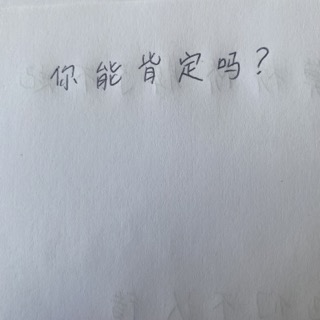 你能肯定吗？